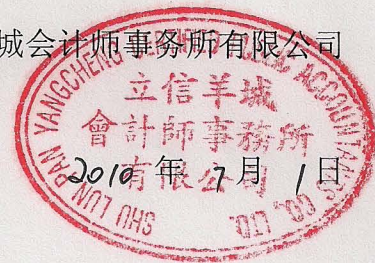 城会计师事务所有限公司
SHU LUN PAN YANGCHENG CERTIFIED PUBLIC ACCOUNTANTS CO., LTD.
立信羊城
會計師事務所
有限公司
2010 年 7 月 1 日